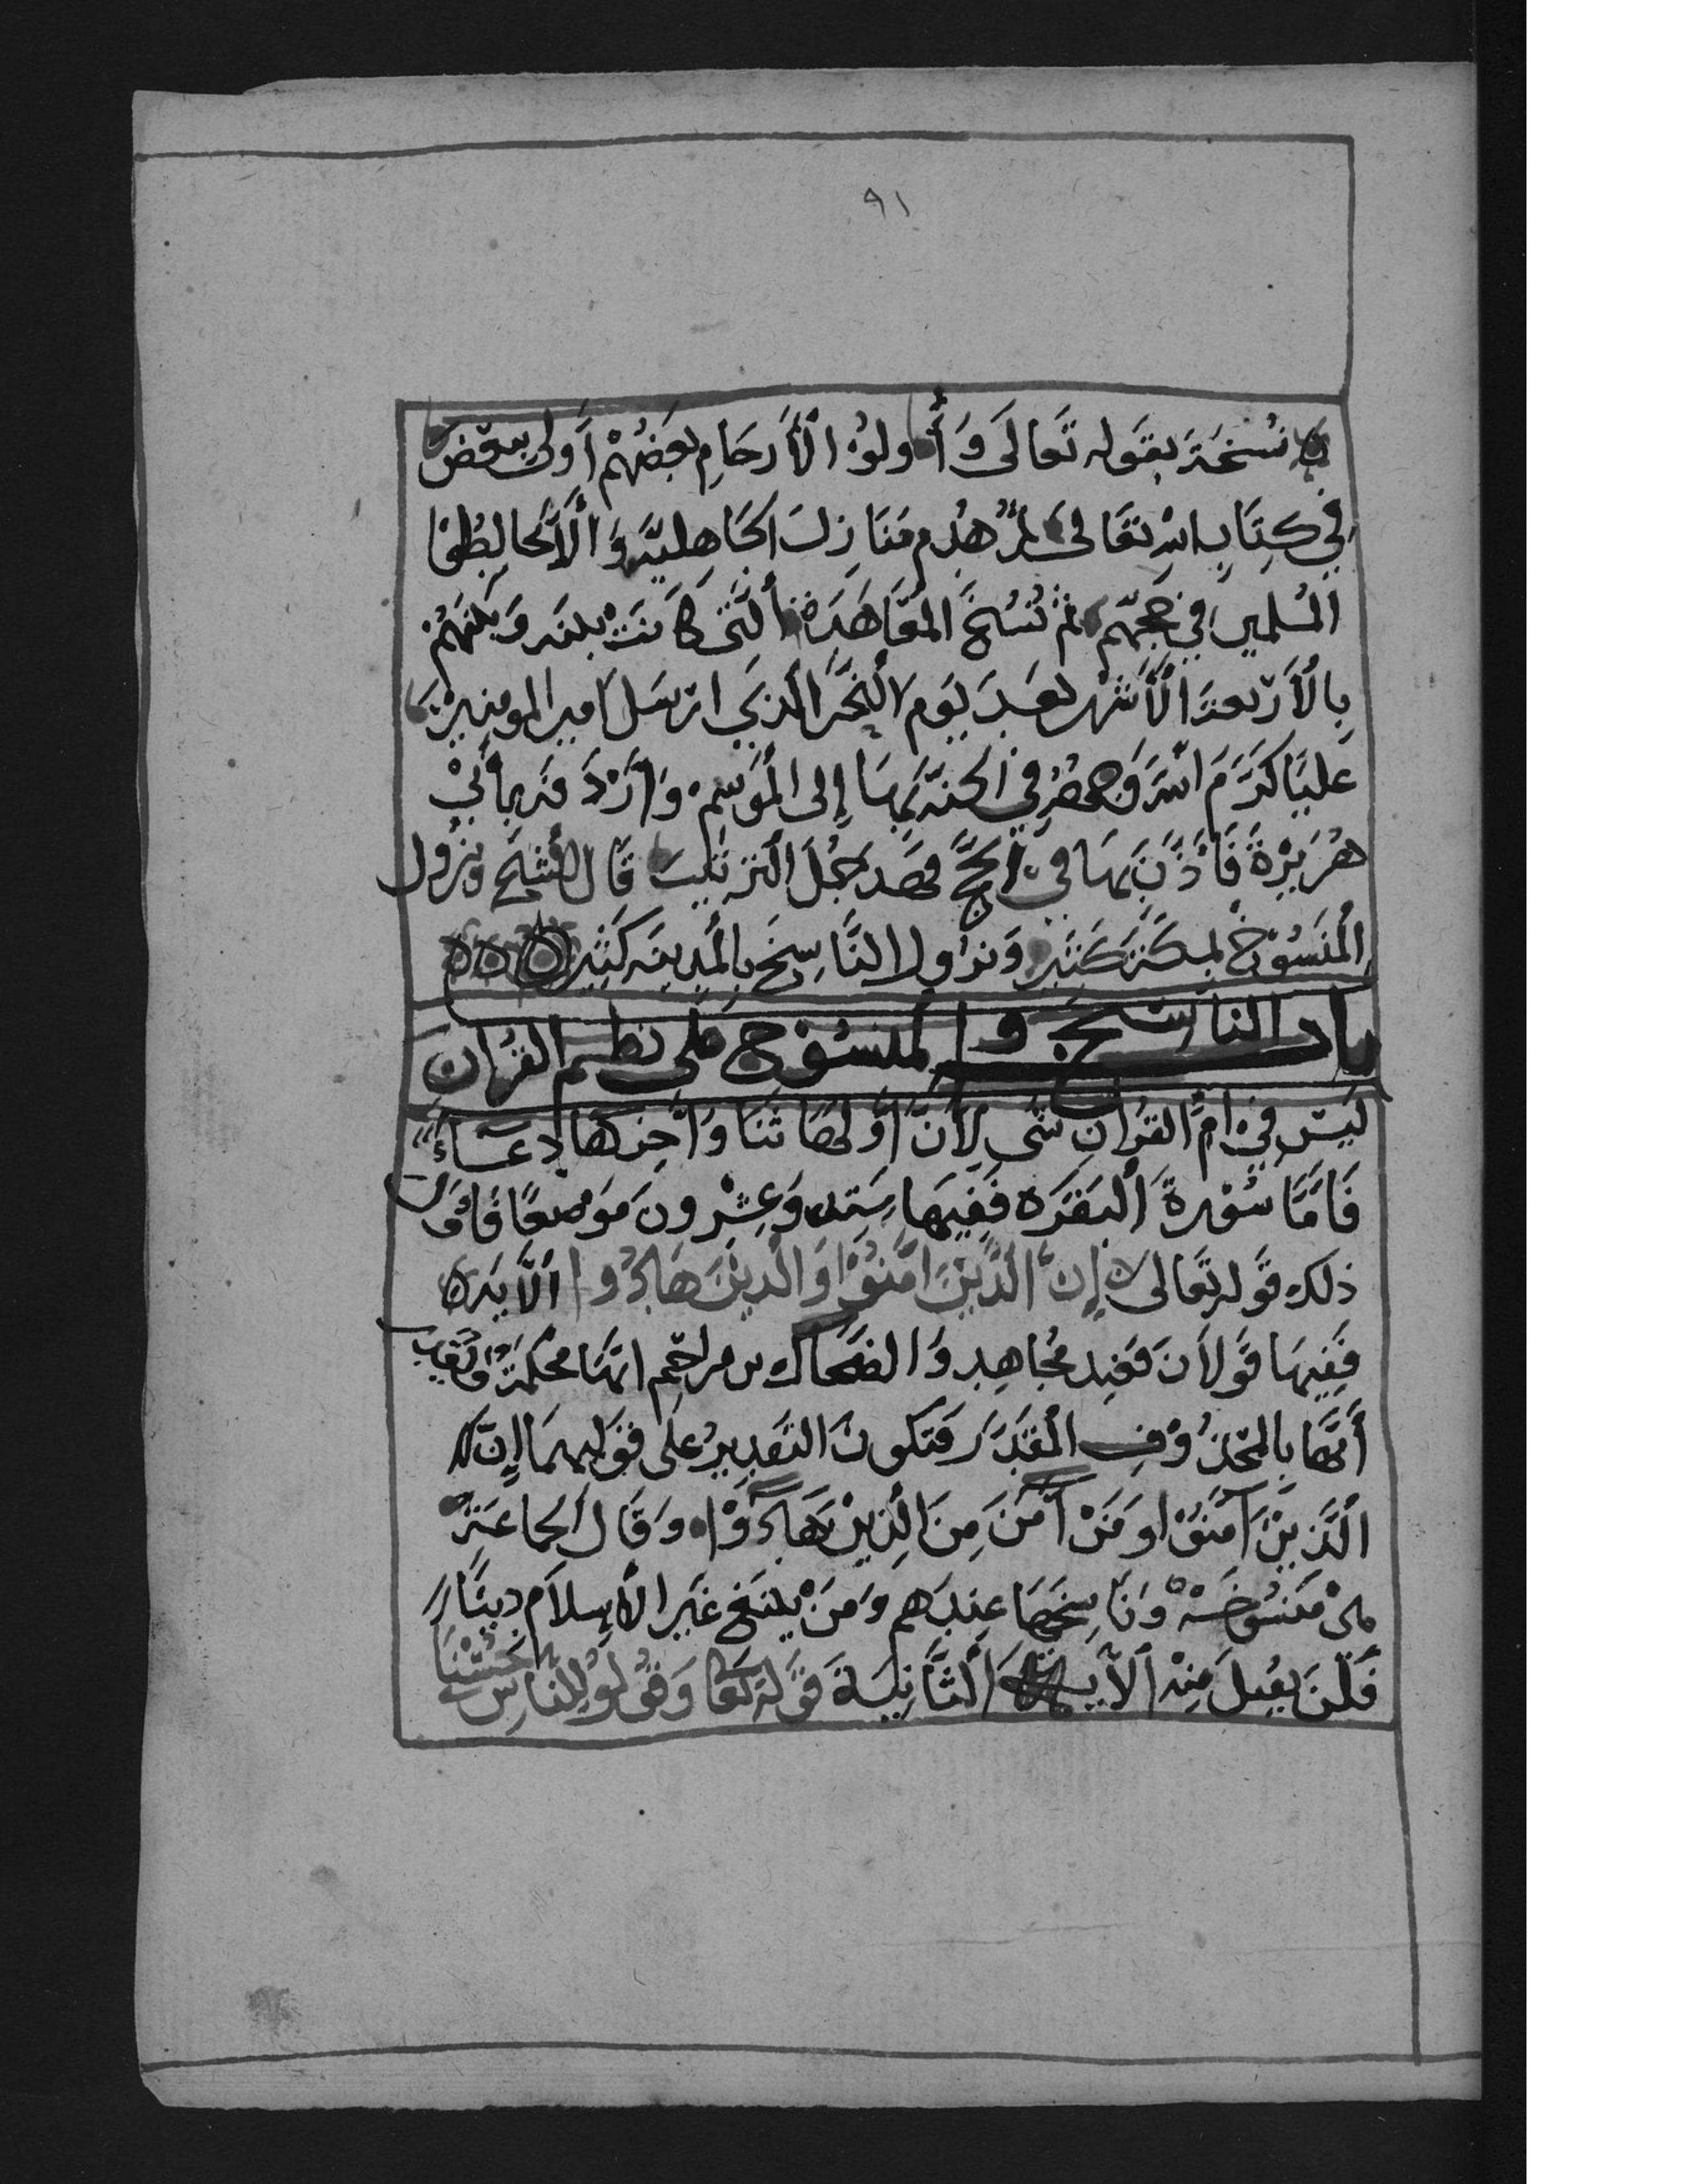 ٩١
نسخة بقوله تعالى وَأُولُوا الْأَرْحَامِ بَعْضُهُمْ أَوْلَى بِبَعْضٍ
في كِتَابِ الله تعالى ثم هدم مَنَازِلَ الجَاهِليّة وَأَلَّا يُخَالِطُوا
المُسلمين في حَجِّهم ثم نُسِخَ المُعَاهَدَة الَّتي كَانَتْ بينه وَبَينَهُمْ
بِالْأَرْبعة الْأَشْهر بَعدَ يَوم النَّحر الذي ارْسَلَ امير المومنينَ
عَليًا كَرَّمَ الله وَجهَهُ في الحجة بِهَا إلى المَوْسِم وَأَرْدَفه بأبي
هُرَيْرَةَ فَأَذَّنَ بِهَا في الحَجِّ فهَذِه جُمَل التَّرتيب قَال الشيخ ونزول
الْمَنْسُوخ بِمَكَّةَ كَثير وَنزول النَّاسِخ بِالْمَدينَه كَثِير
باب الناسخ والمنسوخ على نظم القرآن
لَيسَ في أمِّ القُرآنِ شَي لِأَنَّ أَوَّلهَا ثنَا وَآخِرهَا دعَاءٌ
فَأَمَّا سُورَةُ الْبَقَرَه فَفِيهَا سِتة وَعِشْرونَ مَوضِعًا فَأَوّل
ذلك قَوله تعَالى إِنَّ الَّذِينَ آمَنُوا وَالَّذِينَ هَادُوا الْآيَة
فَفِيهَا قَولَانَ فَعند مُجَاهِد وَالضَّحاك بن مزاحم انهَا محكمَة وَتُقرا
أَنَّهَا بِالمَحْذُوف المُقَدَّر فَتَكونَ التَّقدِيرُ على قَولِهِمَا إِنَّ
الَّذِينَ آمَنُوا وَمَنْ آمَنَ مِنَ الَّذِينَ هَادُوْا وَقَالَ الجماعَة
هيَ مَنسُوخَة وَنَاسِخَهَا عِندَهم وَمَنْ يَبتَغ غَيرَ الْإِسلَام دِينًا
فَلَنْ يُقبلَ مِنْه الْآية الثَّانِيَة قَوله تعَا وَقُولُوا لِلنَّاسِ حُسْنًا